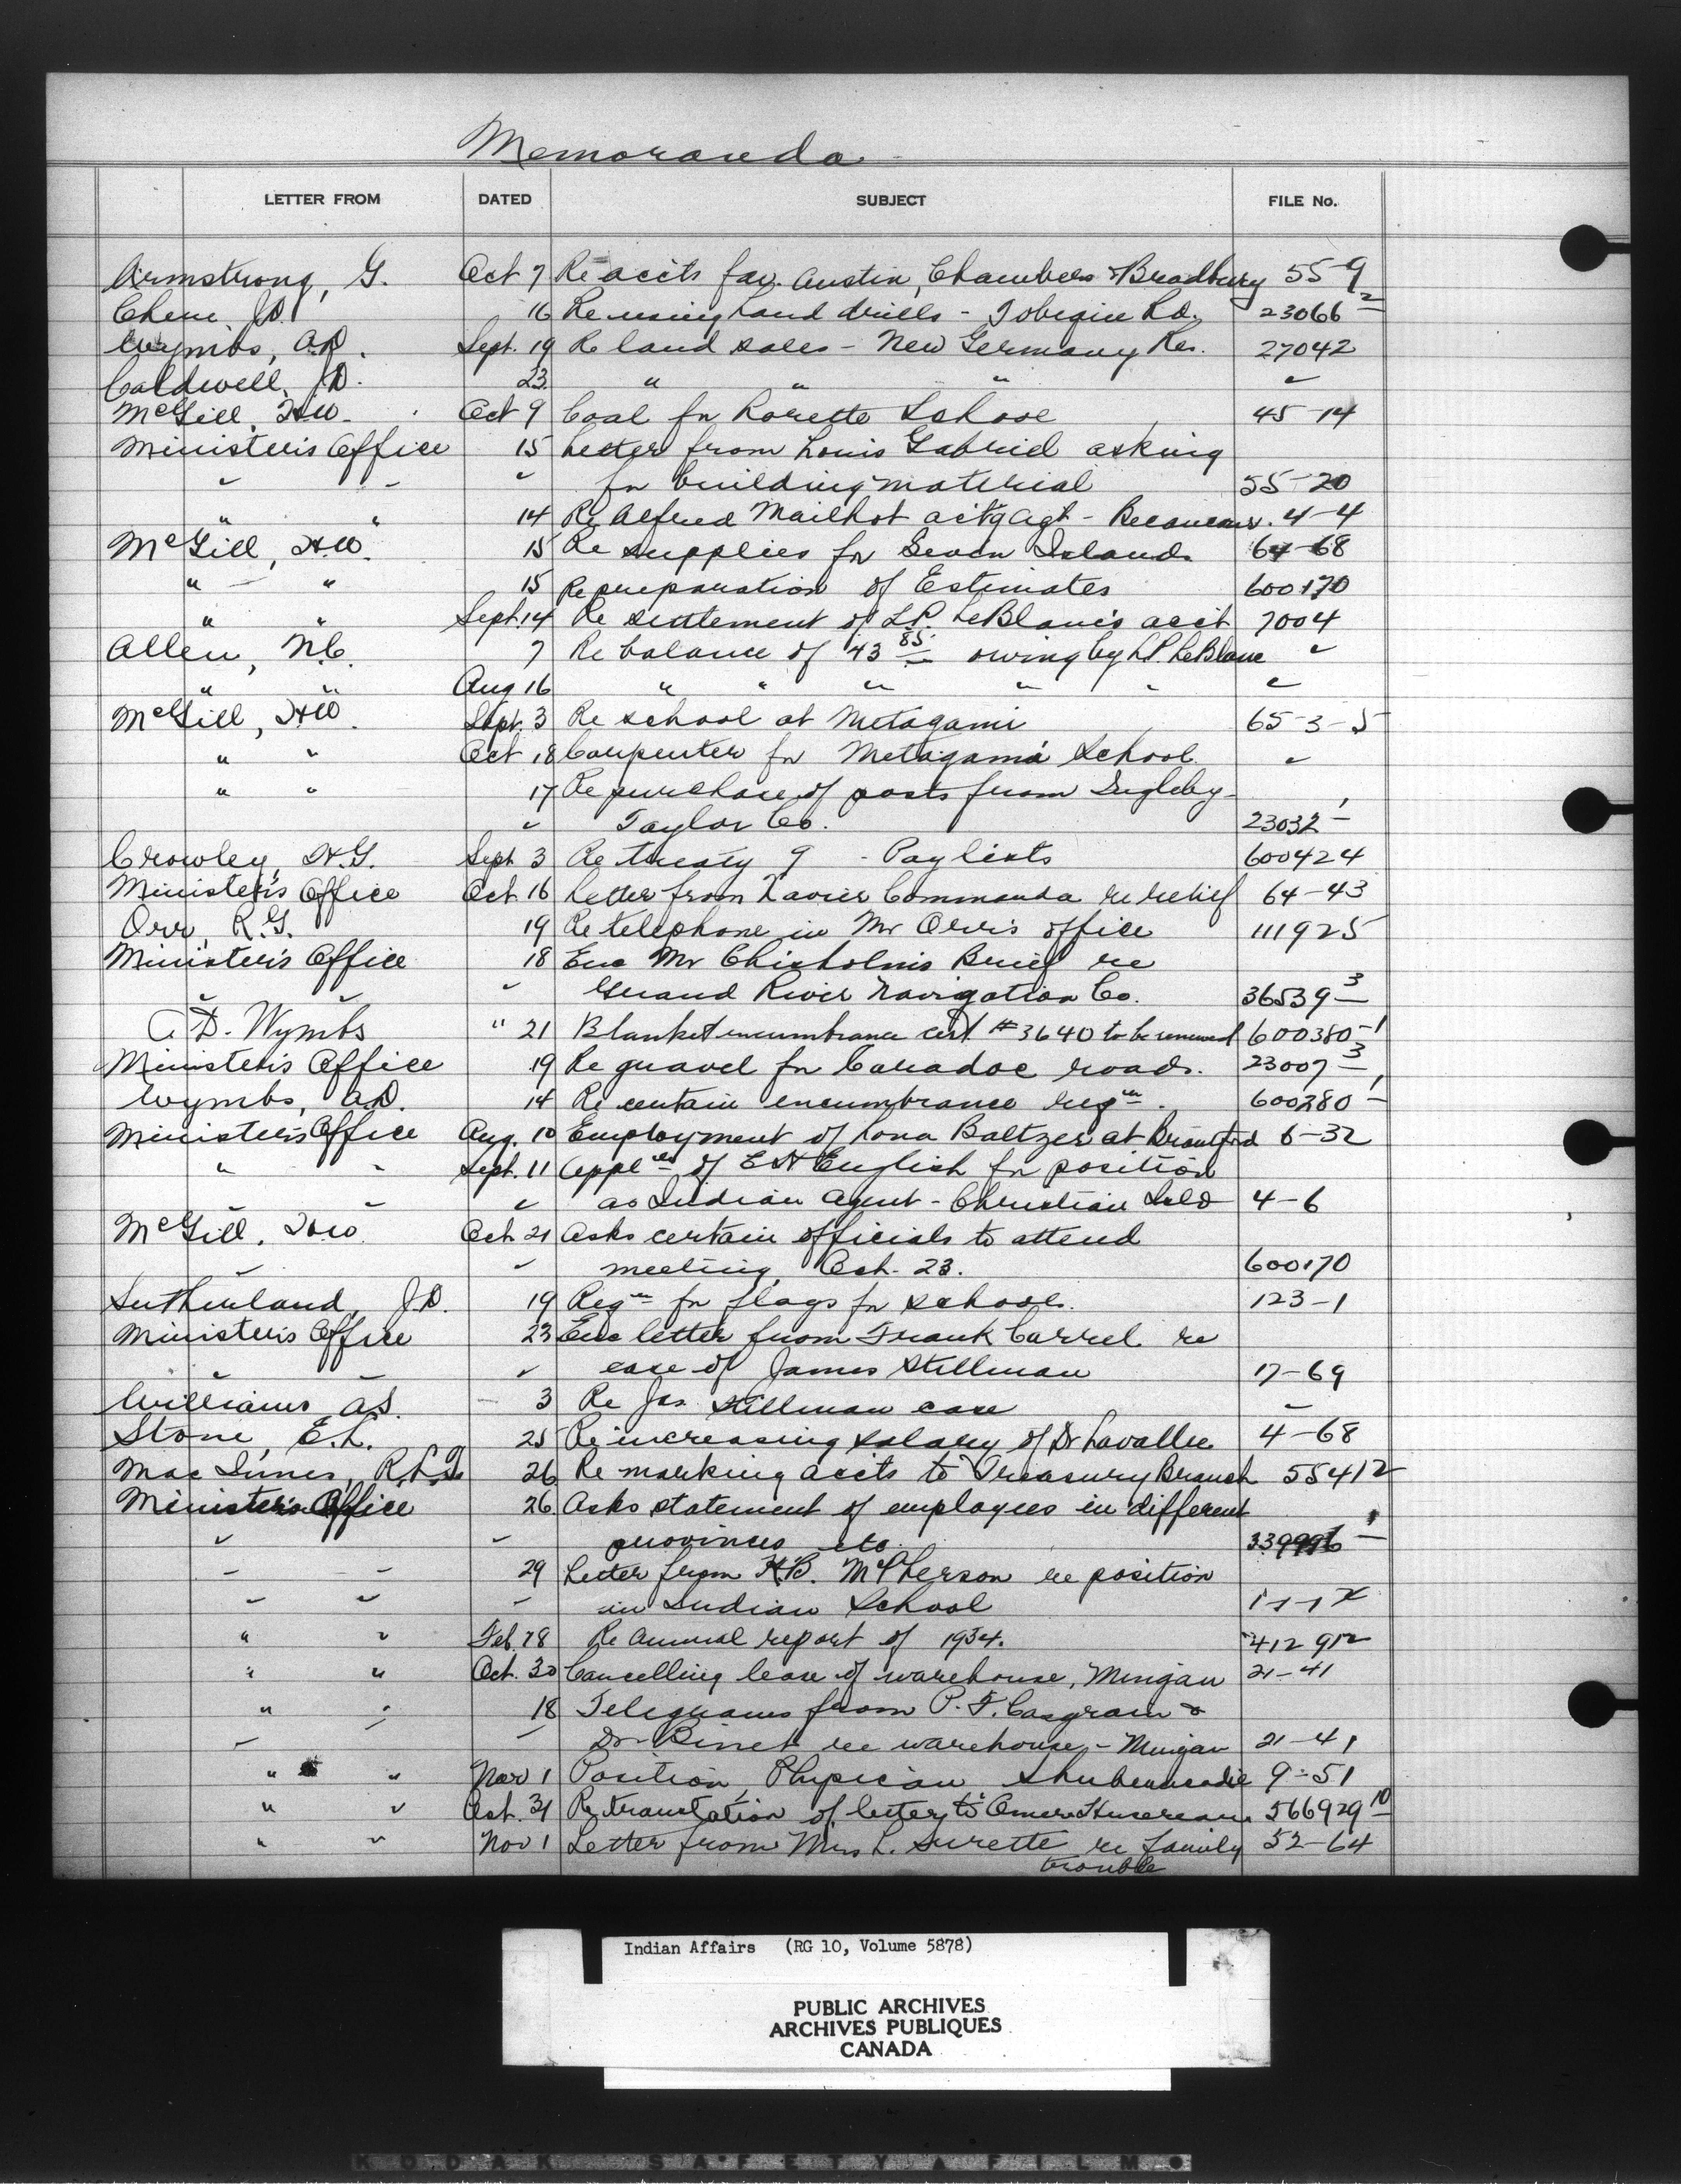 Memoranda
LETTER FROM DATED SUBJECT FILE No.
Armstrong, G. Oct 7 Re accts fav. Austin, Chambers & Bradbury 55-9
Chene, J.D. 16 Re using hand drills - Tobique Rd. 23066-2
Wymbs, A.D. Sept. 19 Re land sales - New Germany Res. 27042
Caldwell, J.D. 23 " " " "
McGill, H.W. Oct 9 Coal for Lorette School 45-14
Minister's Office 15 Letter from Louis Gabriel asking
" " " for building material 55-20
" " 14 Re Alfred Mailhot act'g agt - Becancour. 4-4
McGill, H.W. 15 Re supplies for Seven Islands 64-68
" " 15 Re preparation of Estimates 600170
" " Sept. 14 Re settlement of L.P. LeBlanc's acct 7004
Allen, N.C. 7 Re balance of 43 85 owing by L.P. LeBlanc "
" " Aug 16 " " " " " "
McGill, H.W. Sept. 3 Re school at Metagami 65-3-5
" " Oct 18 Carpenter for Metagama School "
" " 17 Re purchase of posts from Ingleby-
" Taylor Co. 23032-1
Crowley, H.G. Sept 3 Re treaty 9 - Paylists 600424
Minister's Office Oct. 16 Letter from Xavier Commanda re relief 64-43
Orr, R.G. 19 Re telephone in Mr Orr's office 111925
Minister's Office 18 Enc Mr Chisholm's Brief re
" " " Grand River Navigation Co. 36539-3
A.D. Wymbs " 21 Blanket encumbrance cert. #3640 to be renewed 600380-1
Minister's Office 19 Re gravel for Caradoc roads. 23007-3
Wymbs, A.D. 14 Re certain encumbrance reqn. 600280-1
Minister's Office Aug. 10 Employment of Lona Baltzer at Brantford 6-32
" " Sept. 11 Applcn of E H English for position
" " " as Indian Agent - Christian Isld 4-6
McGill, H.W. Oct. 21 Asks certain officials to attend
" " meeting Oct. 23. 600170
Sutherland, J.D. 19 Reqn for flags for schools. 123-1
Minister's Office 23 Enc letter from Frank Carrel re
" " " case of James Stillman 17-69
Williams A.S. 3 Re Jas. Stillman case "
Stone, E.L. 25 Re increasing salary of Dr Lavallee 4-68
MacInnes, R.L.G. 26 Re marking accts to Treasury Branch 55412
Minister's Office 26. Asks statement of employees in different
" " provinces etc.
" " 29 Letter from H.B. McPherson re position
" " " in Indian School
" " Feb. 28 Re Annual report of 1934. 412 912
" " Oct. 30 Cancelling lease of warehouse, Mingan 21-41
" " 18 Telegrams from P.F. Casgrain &
" " Dr. Binet re warehouse - Mingan 21-41
" " Nov 1 Position, Physician Shubenacadie 9-51
" " Oct. 31 Re translation of letter to Omer 566929-10
" " Nov 1 Letter from Mrs L. Surette re family 52-64
trouble
Indian Affairs (RG 10, Volume 5878)
PUBLIC ARCHIVES
ARCHIVES PUBLIQUES
CANADA
KODAK SAFETY FILM